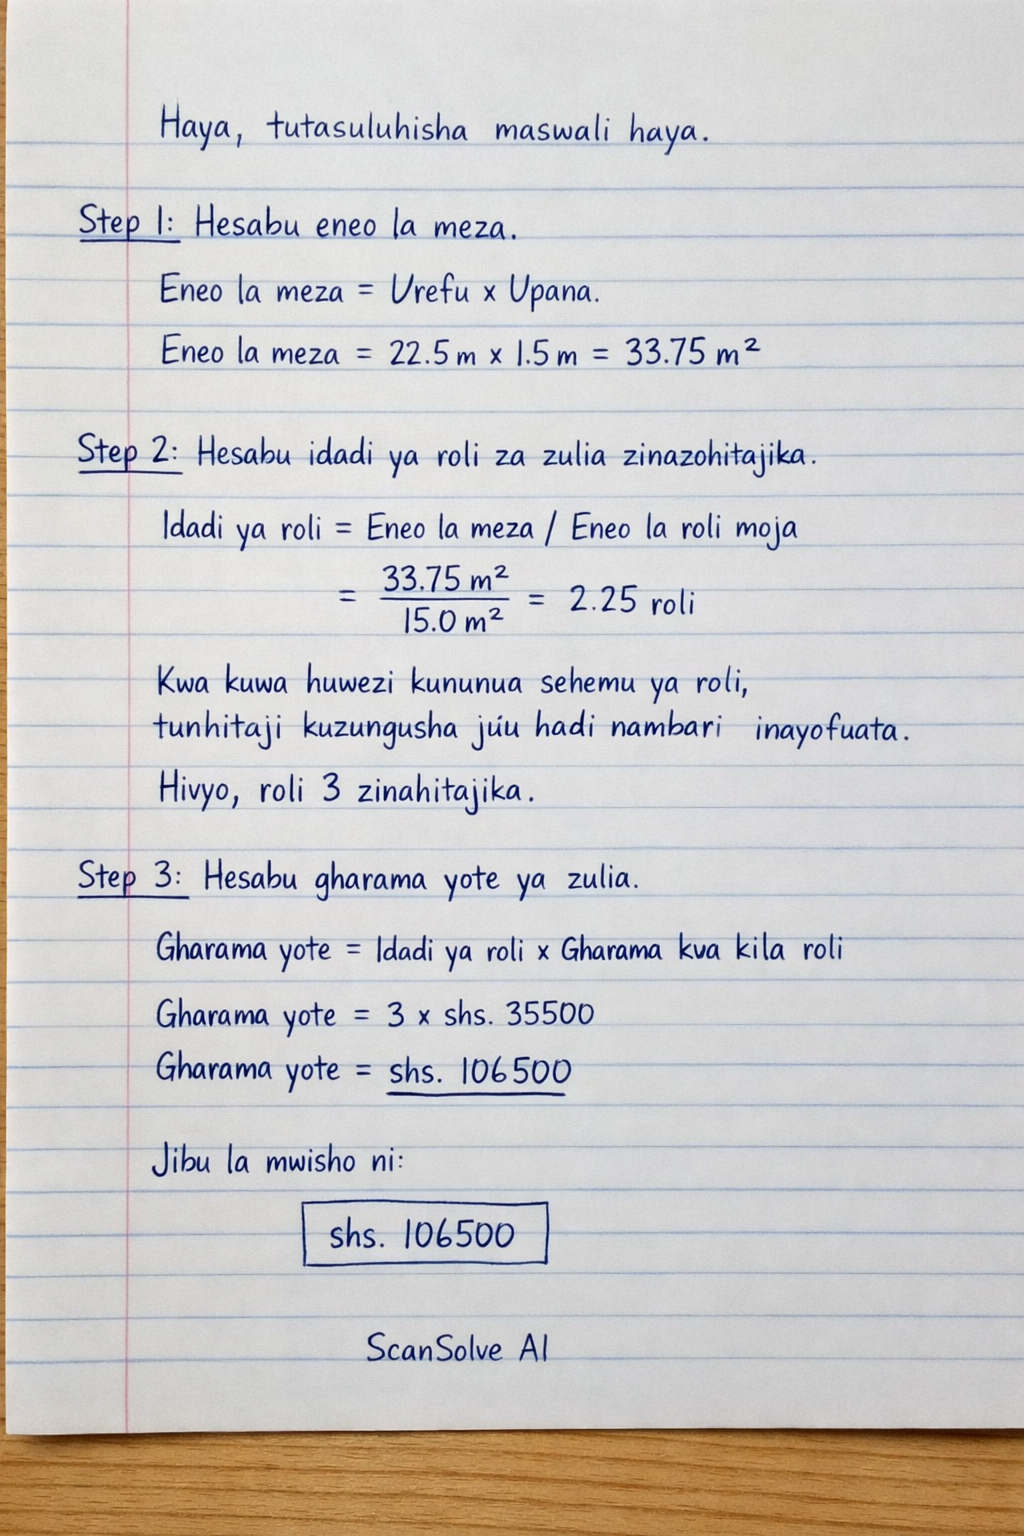 Haya, tutasuluhisha maswali haya.
Step 1: Hesabu eneo la meza.
Eneo la meza = Urefu x Upana.
Eneo la meza = 22.5 m x 1.5 m = 33.75 m²
Step 2: Hesabu idadi ya roli za zulia zinazohitajika.
Idadi ya roli = Eneo la meza / Eneo la roli moja
= 33.75 m² / 15.0 m² = 2.25 roli
Kwa kuwa huwezi kununua sehemu ya roli,
tunhitaji kuzungusha júu hadi nambari inayofuata.
Hivyo, roli 3 zinahitajika.
Step 3: Hesabu gharama yote ya zulia.
Gharama yote = Idadi ya roli x Gharama kva kila roli
Gharama yote = 3 x shs. 35500
Gharama yote = shs. 106500
Jibu la mwisho ni:
shs. 106500
ScanSolve AI